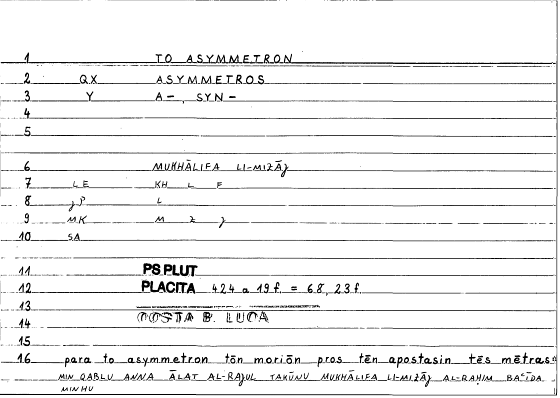 1 TO ASYMMETRON
2 QX ASYMMETROS
3 Y A-, SYN-
4
5
6 MUKHĀLIFA LI-MIZĀJ
7 LE KH L F
8 JP L
9 MK M Z J
10 SA
11 PS PLUT
12 PLACITA 424 a 19 f. = 68, 23 f.
13
14 COSTA B. LUCA
15
16 para to asymmetron tōn moriōn pros tēn apostasin tēs mētras
MIN QABLU ANNA ĀLAT AL-RAJUL TAKŪNU MUKHĀLIFA LI-MIZĀJ AL-RAḤIM BAʿĪDA
MINHU